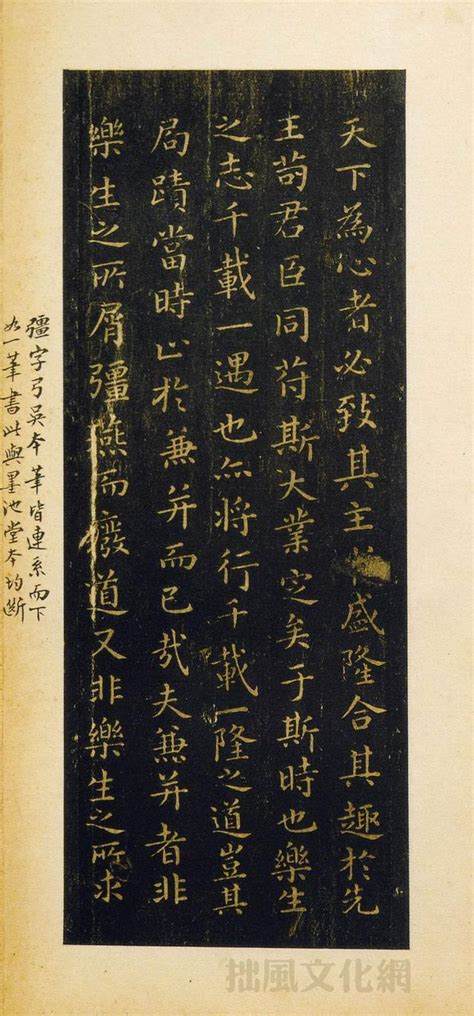 天下為心者必致其主於盛隆合其趣於先
王苟君臣同符斯大業定矣于斯時也樂生
之志千載一遇也亦將行千載一隆之道豈其
局蹟當時止於兼并而已哉夫兼并者非
樂生之所屑彊燕而廢道又非樂生之所求
彊字弓吳本筆皆連系而下
如一筆書此與墨池堂本均斷
拙風文化網